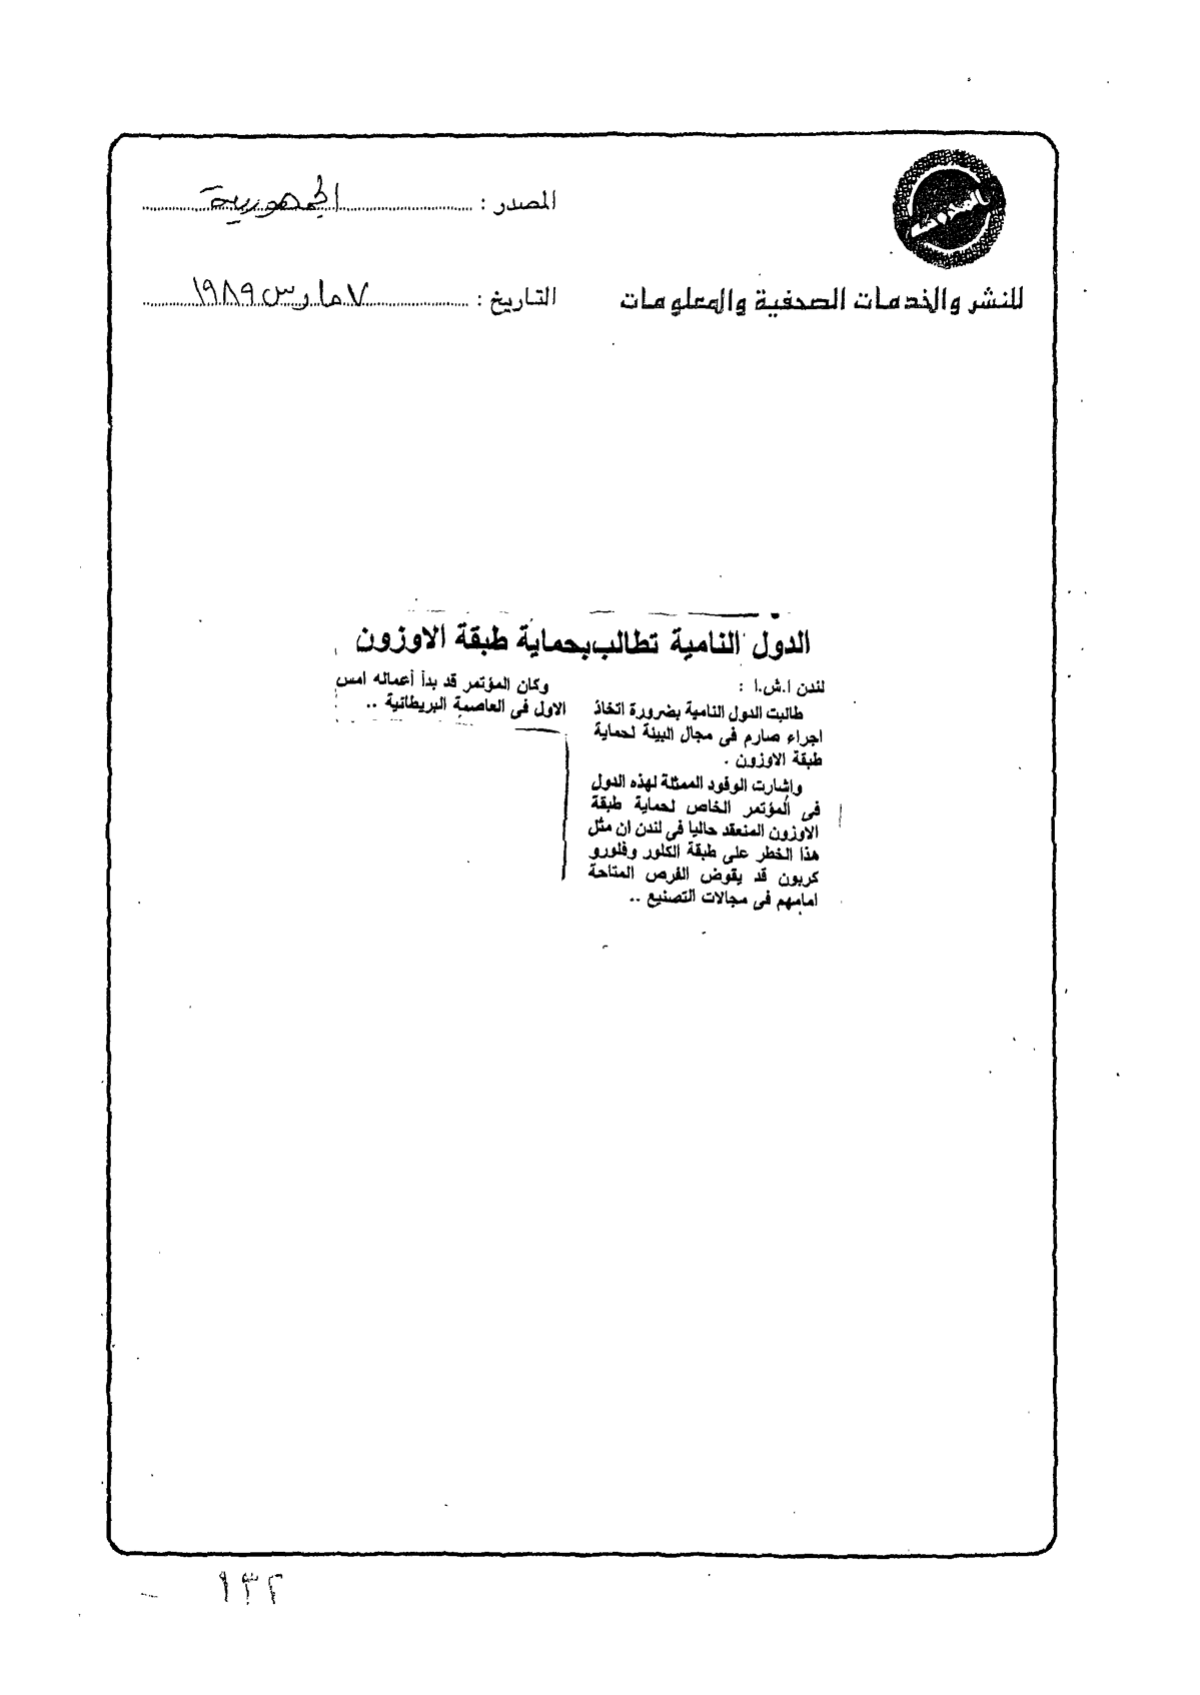 المصدر : الجمهورية
للنشر والخدمات الصحفية والمعلومات
التاريخ : ٧ مارس ١٩٨٩
الدول النامية تطالب بحماية طبقة الاوزون
لندن ا.ش.ا :
طالبت الدول النامية بضرورة اتخاذ
اجراء صارم فى مجال البيئة لحماية
طبقة الاوزون .
واشارت الوفود الممثلة لهذه الدول
فى المؤتمر الخاص لحماية طبقة
الاوزون المنعقد حاليا فى لندن ان مثل
هذا الخطر على طبقة الكلور وفلورو
كربون قد يقوض الفرص المتاحة
امامهم فى مجالات التصنيع ..
وكان المؤتمر قد بدأ أعماله امس
الاول فى العاصمة البريطانية ..